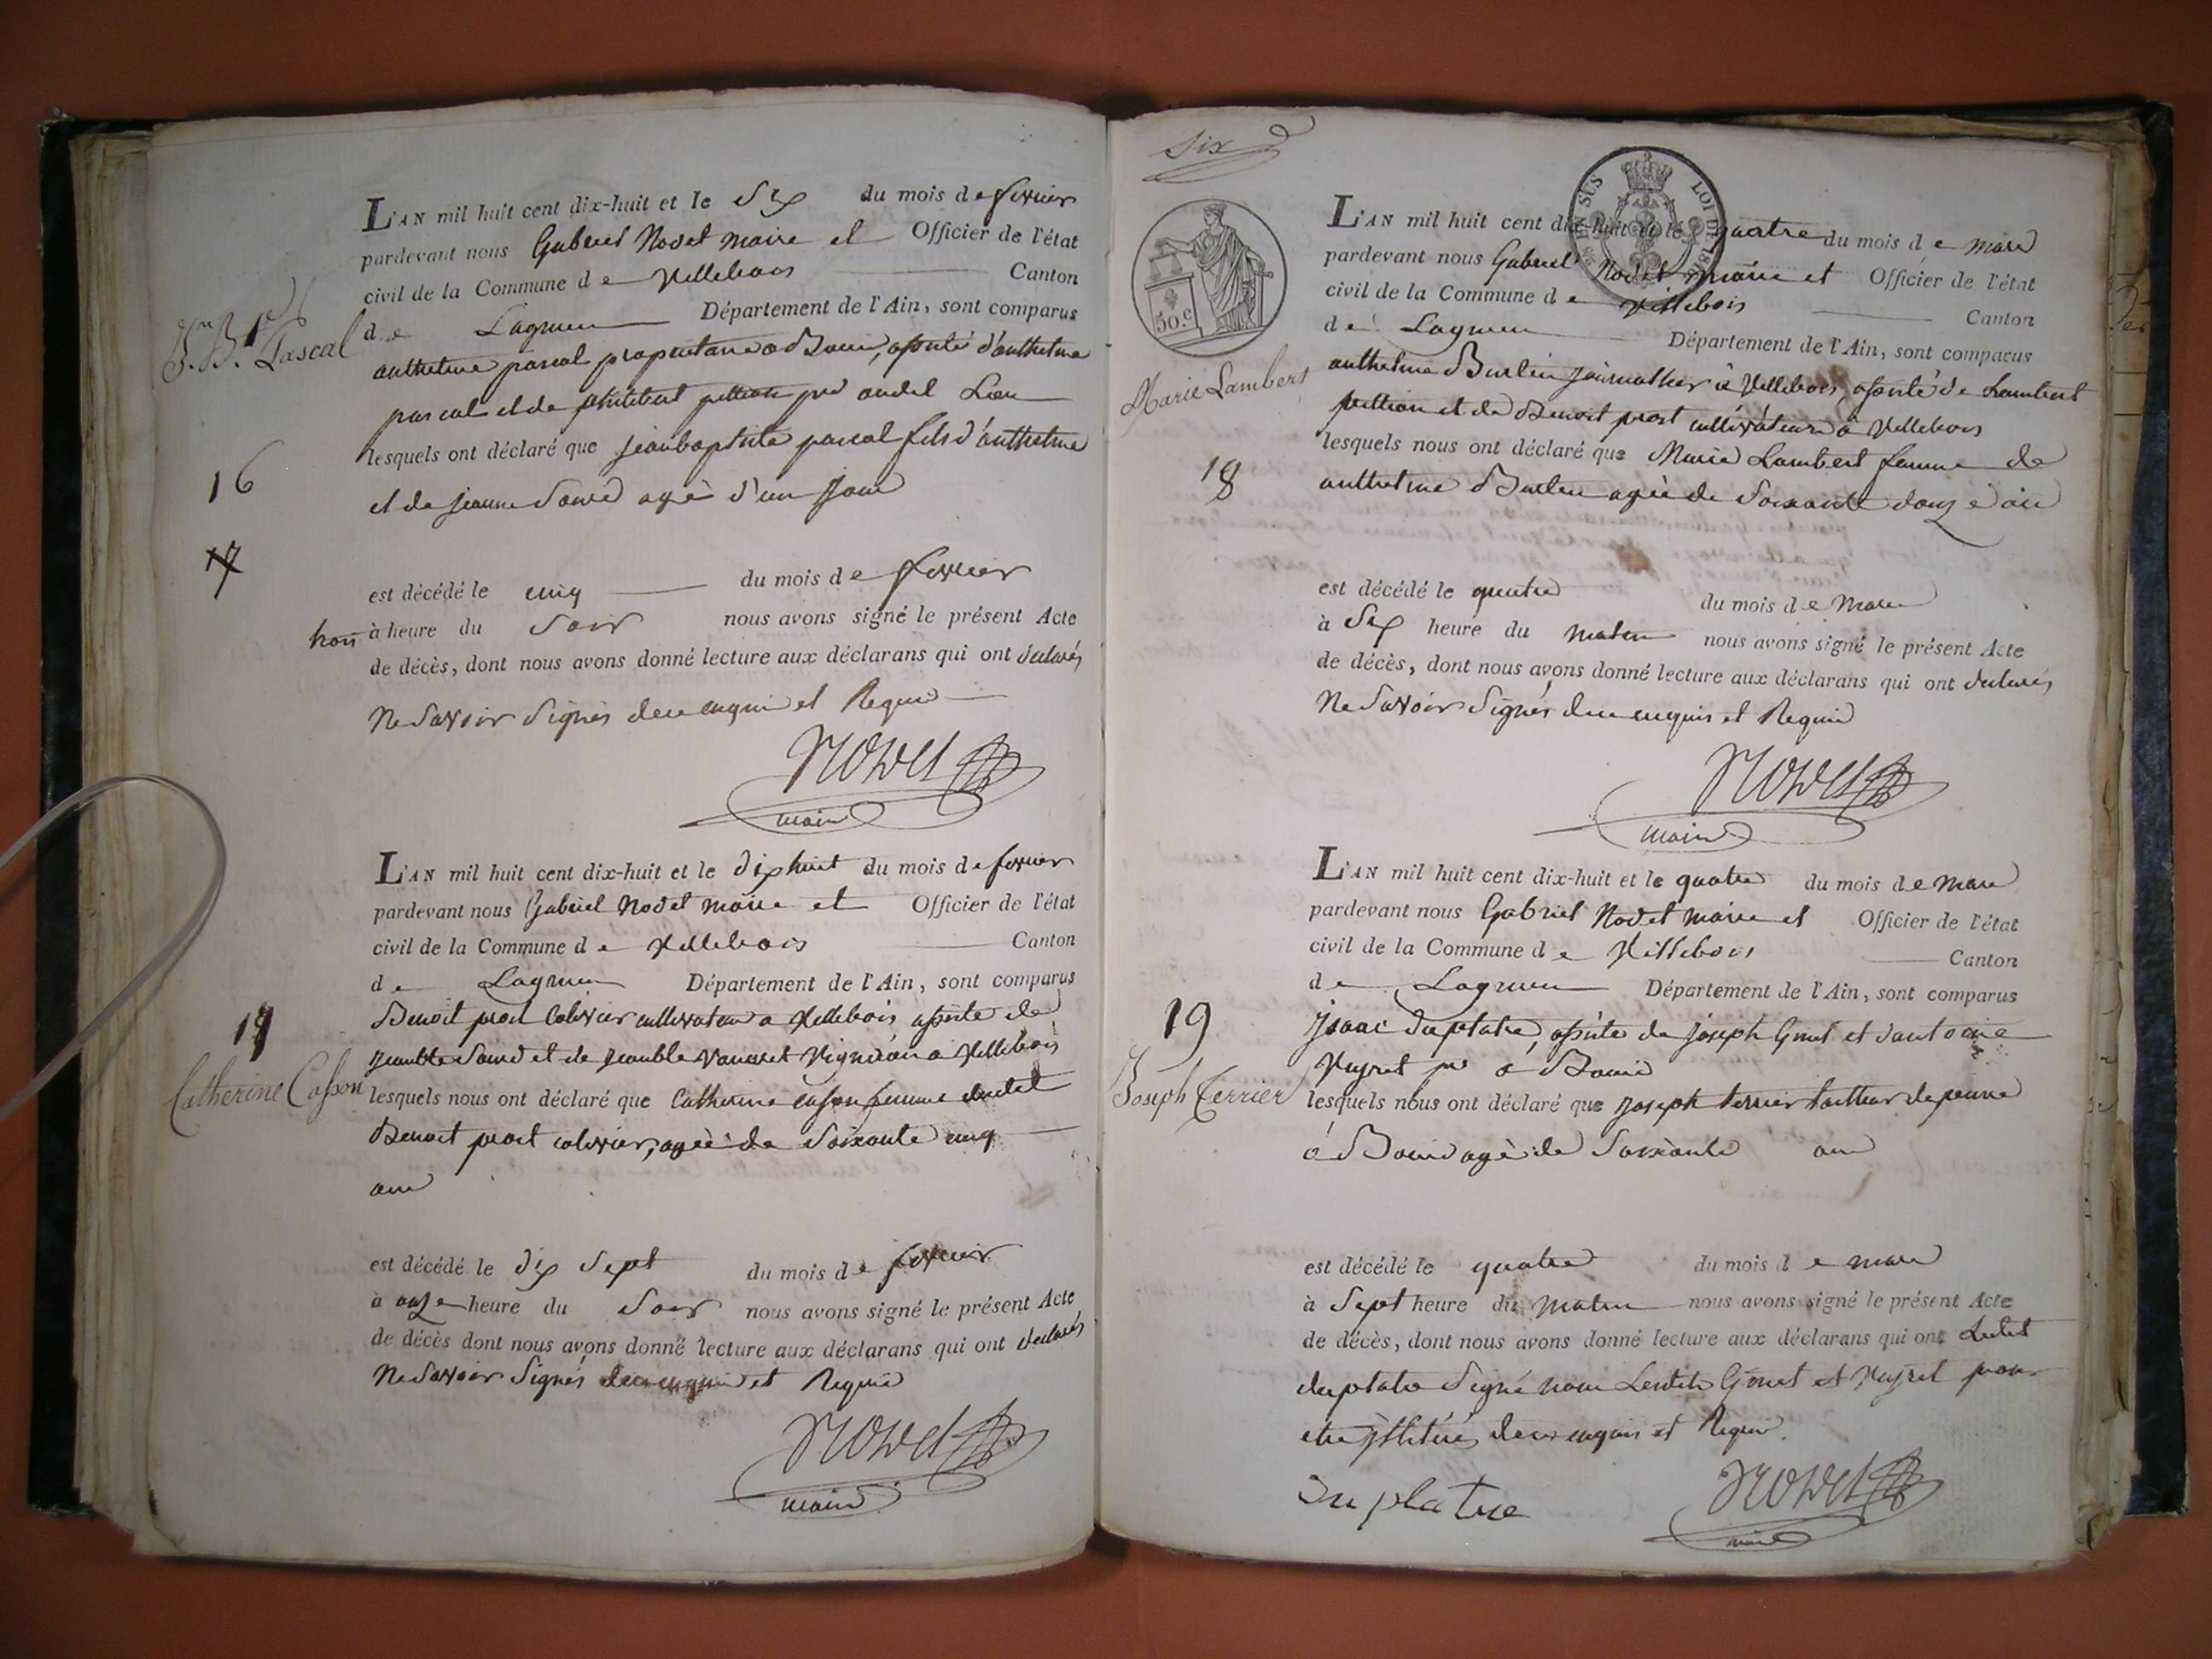 L'AN mil huit cent dix-huit et le Six du mois de fevrier
pardevant nous Gabriel Nodet maire et Officier de l'état
civil de la Commune de Villebois Canton
de Lagnieu Département de l'Ain, sont comparus
J.n B.te Pascal
anthelme pascal propriétaire a Bouis, assisté d'anthelme
pascal et de philibert pellion pre audit Lieu
lesquels ont déclaré que jean baptiste pascal fils d'anthelme
16
et de jeanne Soud agé d'un jour
17
est décédé le cinq du mois de fevrier
trois à heure du Soir nous avons signé le présent Acte
de décès, dont nous avons donné lecture aux déclarans qui ont declarés
Ne Savoir Signés de ce enquis et Requis
Nodet
maire
L'AN mil huit cent dix-huit et le dix huit du mois de fevrier
pardevant nous Gabriel Nodet maire et Officier de l'état
civil de la Commune de Villebois Canton
de Lagnieu Département de l'Ain, sont comparus
17
Benoit prost Colovier cultivateur a Villebois assisté de
et de vigneron a Villebois
Catherine Casson
lesquels nous ont déclaré que Catherine casson femme dudit
Benoit prost colovier, agée de Soixante cinq
ans
est décédé le dix Sept du mois de fevrier
à onze heure du Soir nous avons signé le présent Acte
de décès dont nous avons donné lecture aux déclarans qui ont declarés
Ne Savoir Signés de ce enquis et Requis
Nodet
maire
Six
EN SUS LOI DE 1816
50.c
L'AN mil huit cent dix-huit et le quatre du mois de mars
pardevant nous Gabriel Nodet maire et Officier de l'état
civil de la Commune de Villebois Canton
de Lagnieu Département de l'Ain, sont comparus
Marie Lambert
anthelme Burlin journallier à Villebois, assisté de Lambert
pellion et de Benoit prost cultivateurs à Villebois
lesquels nous ont déclaré que Marie Lambert femme de
18
anthelme Burlin agée de Soixante douze ans
est décédé le quatre du mois de Mars
à Six heure du matin nous avons signé le présent Acte
de décès, dont nous avons donné lecture aux déclarans qui ont declarés
Ne Savoir Signés de ce enquis et Requis
Nodet
maire
L'AN mil huit cent dix-huit et le quatre du mois de Mars
pardevant nous Gabriel Nodet maire et Officier de l'état
civil de la Commune de Villebois Canton
de Lagnieu Département de l'Ain, sont comparus
19
Isaac Duplatre, assisté de joseph Ginet et d'antoine
Veyret pre a Bouis
Joseph Terrier
lesquels nous ont déclaré que joseph terrier tailleur de pierre
à Bouis agé de Soixante ans
est décédé le quatre du mois de mars
à Sept heure du Matin nous avons signé le présent Acte
de décès, dont nous avons donné lecture aux déclarans qui ont Ledit
duplatre Signé non Lesdits Ginet et Veyret pour
être illitérés de ce enquis et Requis.
Du platre
Nodet
maire